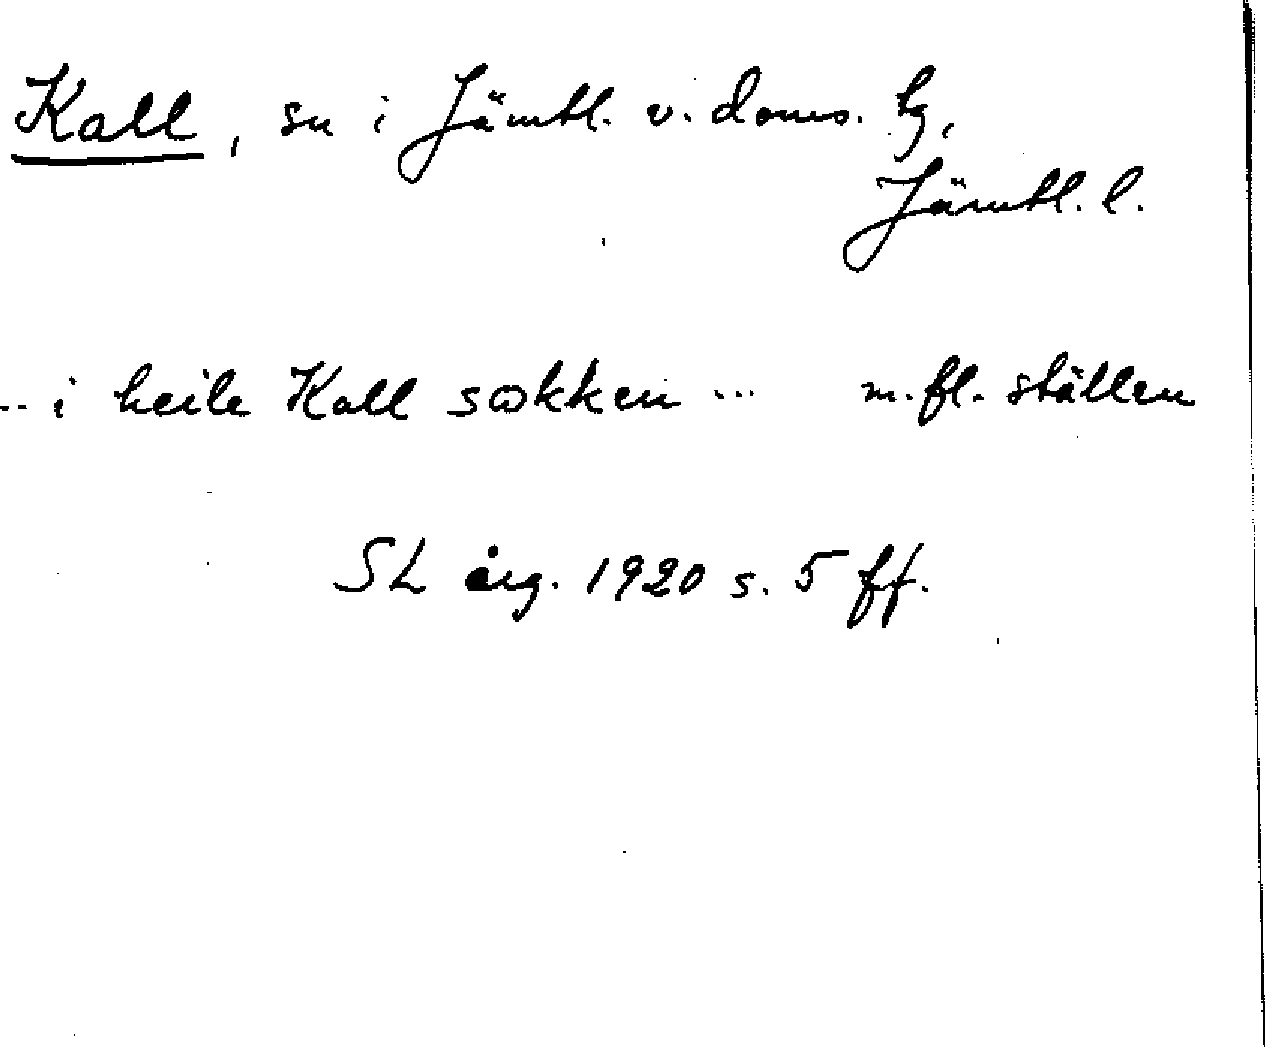 Kall, sn i Jämtl. v. doms. tg,
Jämtl. l.
... i heile Kall sokken ... m.fl. ställen
SL årg. 1920 s. 5 ff.